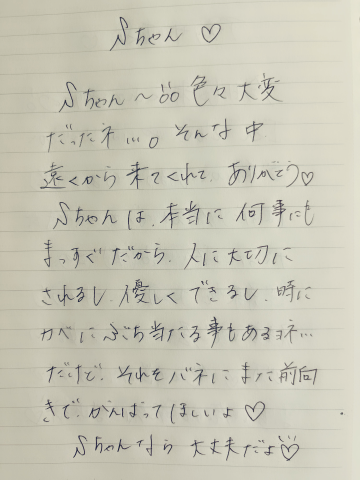 Sちゃん ♡
Sちゃん〜 色々大変
だったネ…。そんな中
遠くから来てくれて、ありがとう♡
Sちゃんは、本当に何事にも
まっすぐだから、人に大切に
されるし、優しくできるし、時に
カベにぶち当たる事もあるヨネ…
だけど、それをバネにまた前向
きで、がんばってほしいよ♡
Sちゃんなら大丈夫だよ♡